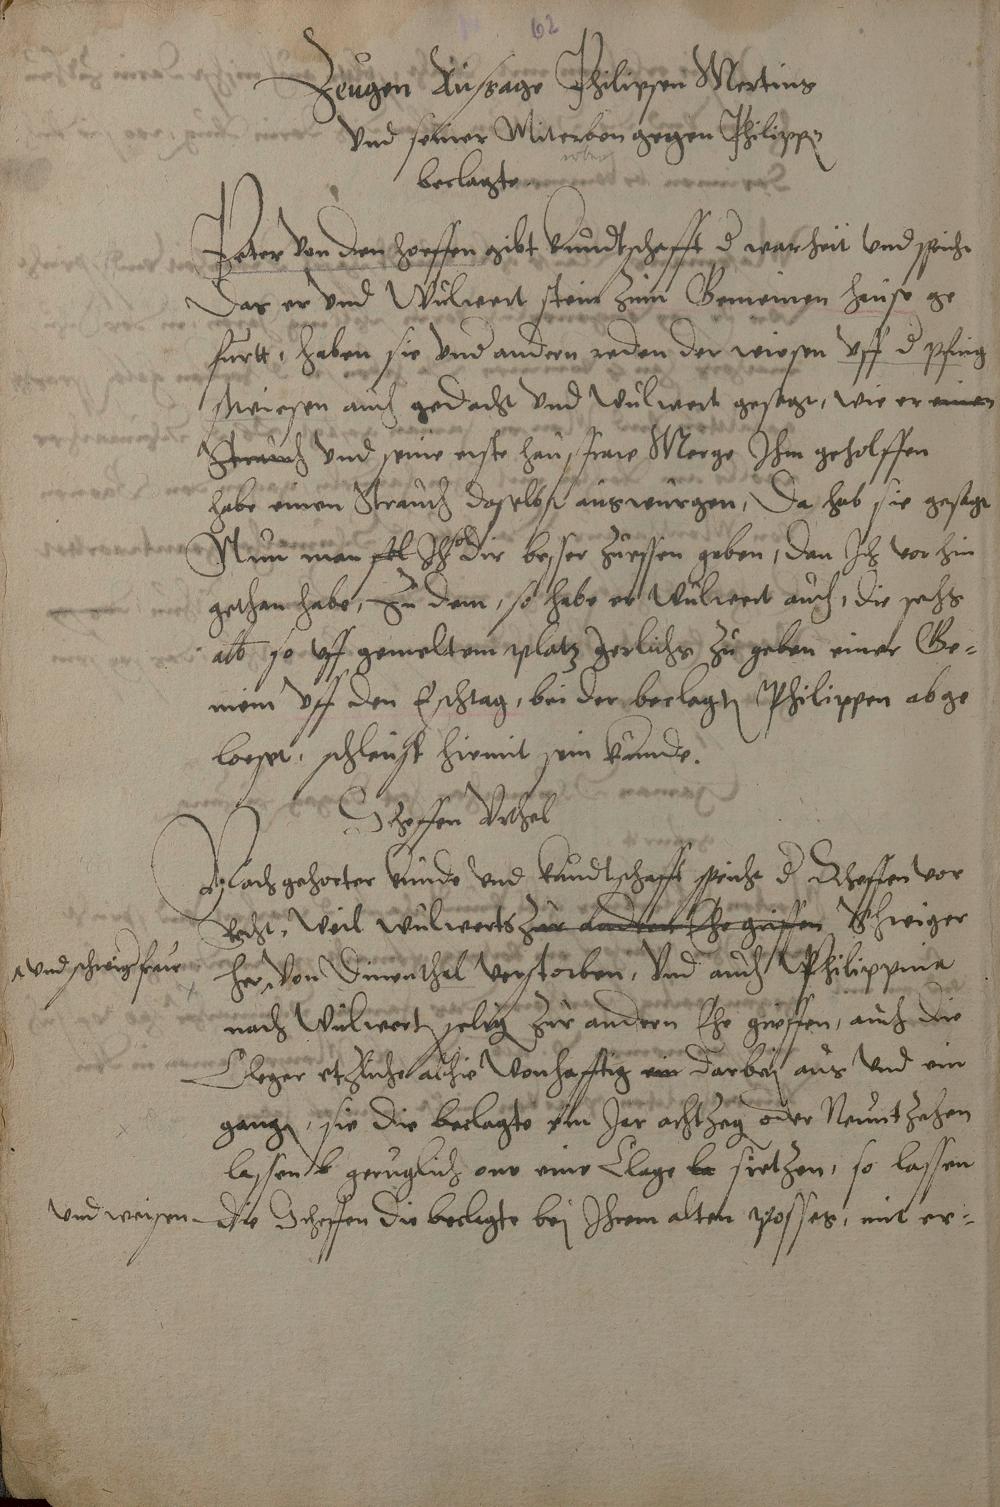 62
Zeugen Aussage Philipsen Mertins
Vnd seiner Miterben gegen Philipp
erben
beclagte
Peter von den hoeffen gibt kundtschafft d warheit vnd spricht
Das er vnd Wulwert stein zum Gemeinen hause ge
furtt, haben sie vnd andern reden der wiesen vff d pfing
stwiesen auch gedacht vnd Wulwert gesagt, wie er einen
Strauch vnd seine erste hausfraw Merge Ihm geholffen
habe einen Strauch daselbst auswurgen, Da hab sie gesagt
Nun man sol Ich dir besser zuessen geben, dan Ich vorhin
gethan habe, Zu dem, so habe er Wulwert auch, die sechs
alb so vff gemeltem platz Jerlichs zu geben einer Ge-
mein vff den Eschtag, bei der beclagt Philippen abge
loest, schleust hiemit sein kunde.
Scheffen Vrthel
Nach gehorter kunde vnd kundtschafft spricht d Scheffen vor
Recht, Weil Wulwerts zur andern Ehe griffen Schwiger
vnd schwigerfraw
her, von Dinenthal verstorben, Vnd auch Philippina
nach Wulwert selig zur andern Ehe grieffen, auch die
Cleger etzliche wonhafftig ein darbei aus vnd ein
gang, sie die beclagte ein Jar achtzeg oder Neuntzehen
lassen b geruglich one eine Clage be sietzen, so lassen
vnd weisen
die Scheffen die beclagte bej Ihrem alten posses, mit er-